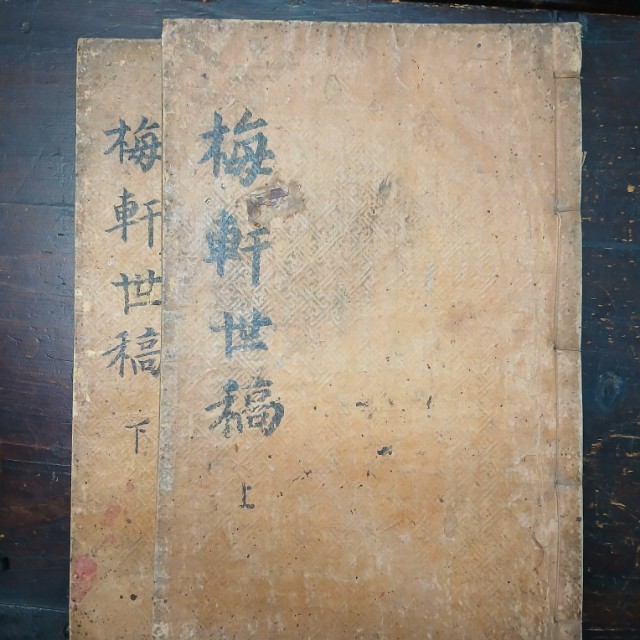 梅軒世稿
上
梅軒世稿
下